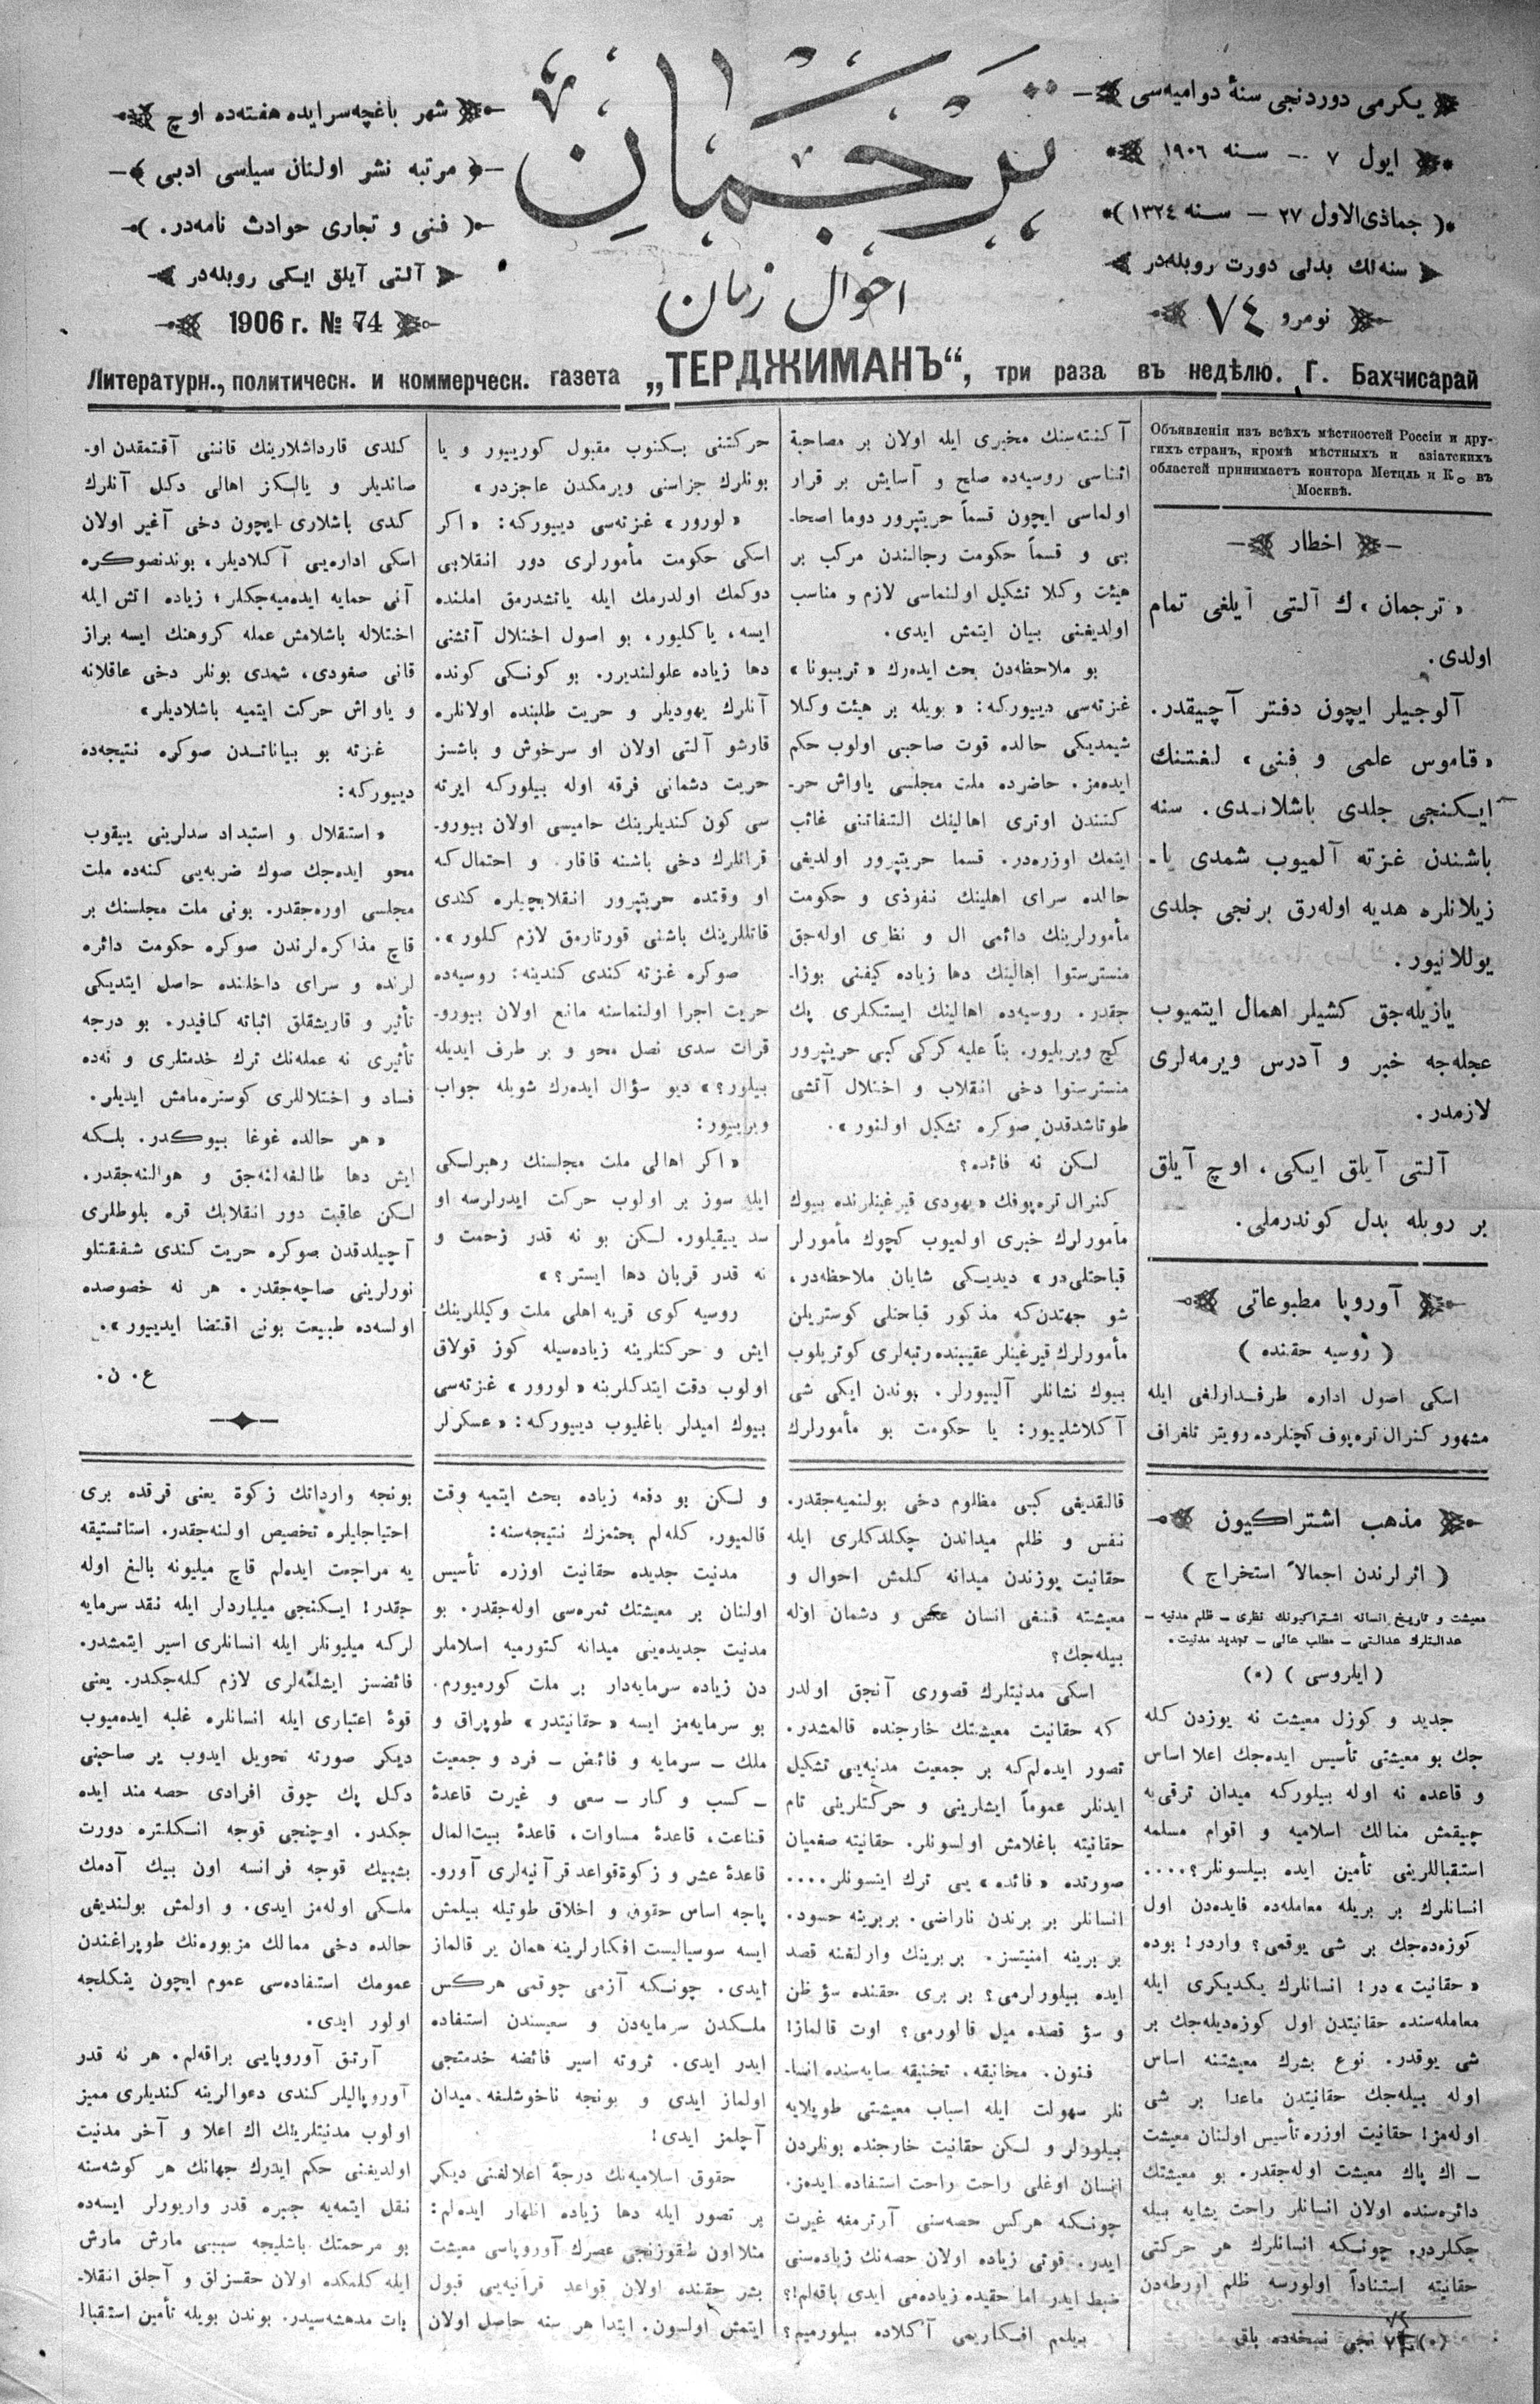 یكرمی دوردنجی سنهٔ دوامیه‌سی
ایول ٧ — سنه ١٩٠٦
( جماذی‌الاول ٢٧ — سنه ١٣٢٤ )
سنه‌لك بدلی دورت روبله‌در
نومرو ٧٤
ترجمان
احوال زمان
شهر باغچه‌سرایده هفته‌ده اوچ
مرتبه نشر اولنان سیاسی ادبی
( فنی و تجاری حوادث نامه‌در. )
آلتی آیلق ایكی روبله‌در
1906 г. № 74
Литературн., политическ. и коммерческ. газета „ТЕРДЖИМАНЪ“, три раза въ недѣлю. Г. Бахчисарай
Объявленія изъ всѣхъ мѣстностей Россіи и дру-
гихъ странъ, кромѣ мѣстныхъ и азіатскихъ
областей принимаетъ контора Метцль и К° въ
Москвѣ.
اخطار
« ترجمان » ك آلتی آیلغی تمام
اولدی.
آلوجیلر ایچون دفتر آچیقدر.
« قاموس علمی و فنی » لغتنك
ایكنجی جلدی باشلاندی. سنه
باشندن غزته آلمیوب شمدی یا-
زیلانلره هدیه اوله‌رق برنجی جلدی
یوللانیور.
یازیله‌جق كشیلر اهمال ایتمیوب
عجله‌جه خبر و آدرس ویرمه‌لری
لازمدر.
آلتی آیلق ایكی، اوچ آیلق
بر روبله بدل كوندرملی.
آوروپا مطبوعاتی
( روسیه حقنده )
اسكی اصول اداره طرفدارلغی ایله
مشهور كنرال تره‌پوف كچنلرده رویتر تلغراف
آكنته‌سنك مخبری ایله اولان بر مصاحبهٔ
اثناسی روسیه‌ده صلح و آسایش بر قرار
اولماسی ایچون قسماً حریتپرور دوما اصحا-
بی و قسماً حكومت رجالندن مركب بر
هیئت وكلا تشكیل اولنماسی لازم و مناسب
اولدیغنی بیان ایتمش ایدی.
بو ملاحظه‌دن بحث ایده‌رك « تریبونا »
غزته‌سی دیبوركه: « بویله بر هیئت وكلا
شیمدیكی حالده قوت صاحبی اولوب حكم
ایده‌مز. حاضرده ملت مجلسی یاواش حر-
كتندن اوتری اهالینك التفاتنی غائب
ایتمك اوزره‌در. قسما حریتپرور اولدیغی
حالده سرای اهلینك نفوذی و حكومت
مأمورلرینك دائمی ال و نظری اوله‌جق
منسترستوا اهالینك دها زیاده كیفنی بوزا-
جقدر. روسیه‌ده اهالینك ایستكلری پك
كچ ویریلیور. بناً علیه كركی كبی حریتپرور
منسترستوا دخی انقلاب و اختلال آتشی
طوتاشدقدن صوكره تشكیل اولنور ».
لكن نه فائده؟
كنرال تره‌پوفك « یهودی قیرغینلرنده بیوك
مأمورلرك خبری اولمیوب كچوك مأمورلر
قباحتلی‌در » دیدیكی شایان ملاحظه‌در،
شو جهتدن‌كه مذكور قباحتلی كوستریلن
مأمورلرك قیرغینلر عقیبنده رتبه‌لری كوتریلوب
بیوك نشانلر آلیبورلر. بوندن ایكی شی
آكلاشلیبور: یا حكومت بو مأمورلرك
حركتنی بكنوب مقبول كوریبور و یا
بونلرك جزاسنی ویرمكدن عاجزدر »
« لورور » غزته‌سی دیبوركه: « اكر
اسكی حكومت مأمورلری دور انقلابی
دوكمك اولدرمك ایله یاتشدرمق املنده
ایسه، یاكلیور. بو اصول اختلال آتشنی
دها زیاده علولندیرر. بو كونكی كونده
آنلرك یهودیلر و حریت طلبنده اولانلره
قارشو آلتی اولان او سرخوش و باشسز
حریت دشمانی فرقه اوله بیلوركه ایرته
سی كون كندیلرینك حامیسی اولان بیورو-
قراتلرك دخی باشنه قاقار. و احتمال كه
او وقتده حریتپرور انقلابچیلره كندی
قاتللرینك باشنی قورتارمق لازم كلور ».
صوكره غزته كندی كندینه: روسیه‌ده
حریت اجرا اولنماسنه مانع اولان بیورو-
قرات سدی نصل محو و بر طرف ایدیله
بیلور؟ » دیو سؤال ایده‌رك شویله جواب
ویریبور:
« اكر اهالی ملت مجلسنك رهبرلكی
ایله سوز بر اولوب حركت ایدرلرسه او
سد ییقیلور. لكن بو نه قدر زحمت و
نه قدر قربان دها ایستر؟ »
روسیه كوی قریه اهلی ملت وكیللرینك
ایش و حركتلرینه زیاده‌سیله كوز قولاق
اولوب دقت ایتدكلرینه « لورور » غزته‌سی
بیوك امیدلر باغلیوب دیبوركه: « عسكرلر
كلدی قارداشلارینك قاننی آقتمقدن او-
صاندیلر و یالكز اهالی دكل آنلرك
كندی باشلاری ایچون دخی آغیر اولان
اسكی اداره‌یی آكلادیلر، بوندنصوكره
آنی حمایه ایده‌میه‌جكلر؛ زیاده اتش ایله
اختلاله باشلامش عمله كروهنك ایسه براز
قانی صغودی، شمدی بونلر دخی عاقلانه
و یاواش حركت ایتمیه باشلادیلر»
غزته بو بیاناتدن صوكره نتیجه‌ده
دیبوركه:
« استقلال و استبداد سدلرینی ییقوب
محو ایده‌جك صوك ضربه‌یی كنه‌ده ملت
مجلسی اوره‌جقدر. بونی ملت مجلسنك بر
قاچ مذاكره‌لرندن صوكره حكومت دائره
لرنده و سرای داخلنده حاصل ایتدیكی
تأثیر و قاریشقلق اثباته كافیدر. بو درجه
تأثیری نه عمله‌نك ترك خدمتلری و نه‌ده
فساد و اختلاللری كوستره‌مامش ایدیلر.
« هر حالده غوغا بیوكدر. بلكه
ایش دها طالغه‌لنه‌جق و هوالنه‌جقدر.
لكن عاقبت دور انقلابك قره بلوطلری
آچیلدقدن صوكره حریت كندی شفقتلو
نورلرینی صاچه‌جقدر. هر نه خصوصده
اولسه‌ده طبیعت بونی اقتضا ایدیبور ».
ع. ن.
مذهب اشتراكیون
( اثرلرندن اجمالاً استخراج )
معیشت و تاریخ انسانه اشتراكیونك نظری — ظلم مدنیه —
عدالتلرك عدالتی — مطلب عالی — تجدید مدنیت.
( ایلروسی ) (*)
جدید و كوزل معیشت نه یوزدن كله
جك بو معیشتی تأسیس ایده‌جك اعلا اساس
و قاعده نه اوله بیلوركه میدان ترقی‌یه
چیقمش ممالك اسلامیه و اقوام مسلمه
استقباللرینی تأمین ایده بیلسونلر؟....
انسانلرك بر بریله معامله‌ده فایده‌دن اول
كوزه‌ده‌جك بر شی یوقمی؟ واردر! بوده
« حقانیت » در! انسانلرك یكدیكری ایله
معامله‌سنده حقانیتدن اول كوزه‌دیله‌جك بر
شی یوقدر. نوع بشرك معیشتنه اساس
اوله بیله‌جك حقانیتدن ماعدا بر شی
اوله‌مز! حقانیت اوزره تأسیس اولنان معیشت
— اك پاك معیشت اوله‌جقدر. بو معیشتك
دائره‌سنده اولان انسانلر راحت یشایه بیله
جكلردر. چونكه انسانلرك هر حركتی
حقانیته استناداً اولورسه ظلم اورطه‌دن
نجی نسخه‌ده باقی
قالقدیغی كبی مظلوم دخی بولنمیه‌جقدر.
نفس و ظلم میداندن چكلدكلری ایله
حقانیت یوزندن میدانه كلمش احوال و
معیشته قنغی انسان عكس و دشمان اوله
بیله‌جك؟
اسكی مدنیتلرك قصوری آنجق اولدر
كه حقانیت معیشتك خارجنده قالمشدر.
تصور ایده‌لم‌كه بر جمعیت مدنیه‌یی تشكیل
ایدنلر عموماً ایشلرینی و حركتلرینی تام
حقانیته باغلامش اولسونلر. حقانیته صغمیان
صورتده « فائده » یی ترك ایتسونلر....
انسانلر بر برندن ناراضی. بربرینه حسود.
بر برینه امنیتسز. بربرینك وارلغنه قصد
ایده بیلورلرمی؟ بر بری حقنده سؤ ظن
و سؤ قصده میل قالورمی؟ اوت قالماز!
فنون. مخانیقه. تخنیقه سایه‌سنده انسا-
نلر سهولت ایله اسباب معیشتی طوپلایه
بیلورلر و لكن حقانیت خارجنده بونلردن
انسان اوغلی راحت راحت استفاده ایده‌مز.
چونكه هركس حصه‌سنی آرترمغه غیرت
ایدر. قوتی زیاده اولان حصه‌نك زیاده‌سنی
ضبط ایدر اما حقیده زیاده‌می ایدی باقه‌لم!؟
بیلمم افكاریمی آكلاده بیلورمیم؟
و لكن بو دفعه زیاده بحث ایتمیه وقت
قالمیور. كله‌لم بحثمزك نتیجه‌سنه:
مدنیت جدیده حقانیت اوزره تأسیس
اولنان بر معیشتك ثمره‌سی اوله‌جقدر. بو
مدنیت جدیده‌یی میدانه كتورمیه اسلاملر
دن زیاده سرمایه‌دار بر ملت كورمیورم.
بو سرمایه‌مز ایسه « حقانیتدر » طوپراق و
ملك — سرمایه و فائض — فرد و جمعیت
— كسب و كار — سعی و غیرت قاعدهٔ
قناعت، قاعدهٔ مساوات، قاعدهٔ بیت‌المال
قاعدهٔ عشر و زكوة‌قواعد قرآنیه‌لری آورو-
پاجه اساس حقوق و اخلاق طوتیله بیلمش
ایسه سوسیالیست افكارلرینه همان یر قالماز
ایدی. چونكه آزمی چوقمی هركس
ملكدن سرمایه‌دن و سعیسندن استفاده
ایدر ایدی. ثروته اسیر فائضه خدمتجی
اولماز ایدی و بونجه ناخوشلغه میدان
آچلمز ایدی!
حقوق اسلامیه‌نك درجهٔ اعلالغنی دیكر
بر تصور ایله دها زیاده اظهار ایده‌لم:
مثلا اون طقوزنجی عصرك آوروپاسی معیشت
بشر حقنده اولان قواعد قرآنیه‌یی قبول
ایتمش اولسون. ابتدا هر سنه حاصل اولان
بونجه وارداتك زكوة یعنی قرقده بری
احتیاجلیلره تخصیص اولنه‌جقدر. استاتستیقه
یه مراجعت ایده‌لم قاچ میلیونه بالغ اوله
جقدر! ایكنجی میلیاردلر ایله نقد سرمایه
لركه میلیونلر ایله انسانلری اسیر ایتمشدر.
فائضسز ایشلمه‌لری لازم كله‌جكدر. یعنی
قوهٔ اعتباری ایله انسانلره غلبه ایده‌میوب
دیكر صورته تحویل ایدوب بر صاحبنی
دكل پك چوق افرادی حصه مند ایده
جكدر. اوچنجی قوجه انكلتره دورت
بشبیك قوجه فرانسه اون بیك آدمك
ملكی اوله‌مز ایدی. و اولمش بولندیغی
حالده دخی ممالك مزبوره‌نك طوپراغندن
عمومك استفاده‌سی عموم ایچون یتكلجه
اولور ایدی.
آرتق آوروپایی براقه‌لم. هر نه قدر
آوروپالیلر كندی دعوالرینه كندیلری ممیز
اولوب مدنیتلرینك اك اعلا و آخر مدنیت
اولدیغنی حكم ایدرك جهانك هر كوشه‌سنه
نقل ایتمه‌یه جبره قدر واریورلر ایسه‌ده
بو مرحمتك باشلیجه سببی مارش مارش
ایله كلمكده اولان حقسزلق و آجلق انقلا-
بات مدهشه‌سیدر. بوندن بویله تأمین استقبال